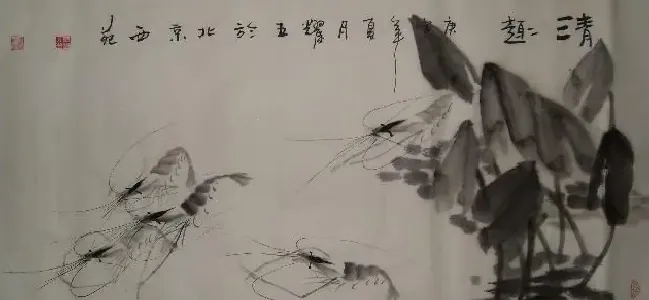 清三趣 庚年夏月耀五於北京西苑